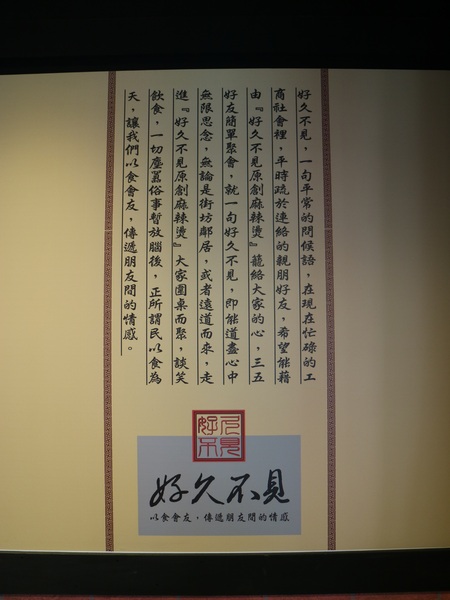 好久不見，一句平常的問候語，在現在忙碌的工
商社會裡，平時疏於連絡的親朋好友，希望能藉
由『好久不見原創麻辣燙』籠絡大家的心，三五
好友簡單聚會，就一句好久不見，即能道盡心中
無限思念，無論是街坊鄰居，或者遠道而來，走
進『好久不見原創麻辣燙』大家圍桌而聚，談笑
飲食，一切塵囂俗事暫放腦後，正所謂民以食為
天，讓我們以食會友，傳遞朋友間的情感。
好久不見
好久不見
以食會友，傳遞朋友間的情感